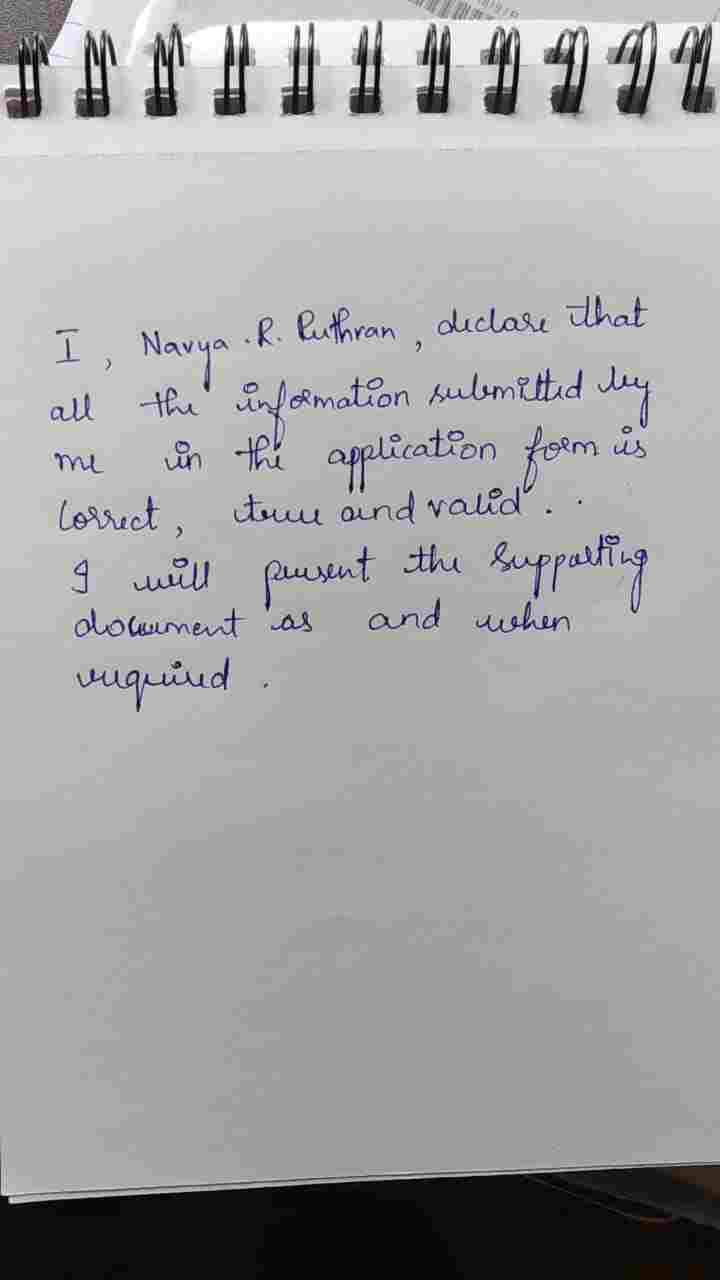 I, Navya .R. Puthran, declare that
all the information submitted by
me in the application form is
correct, true and valid . .
I will present the supporting
document as and when
required .